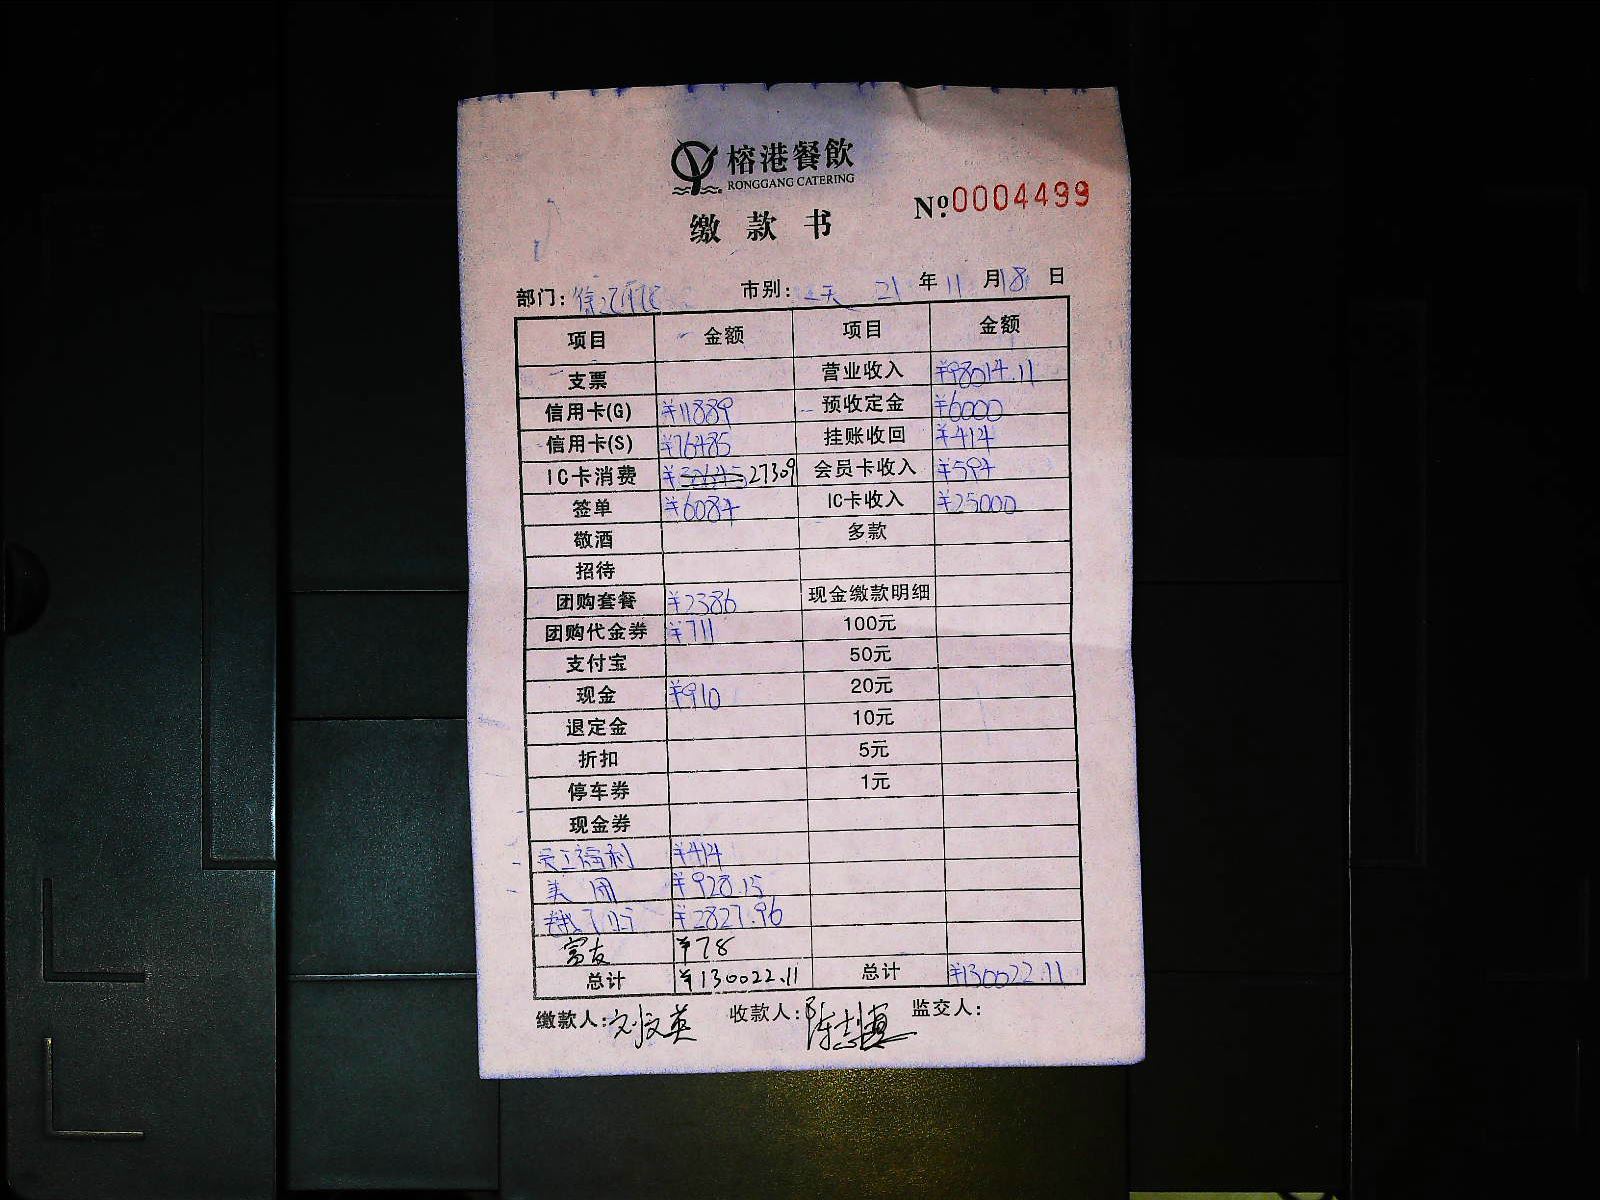 榕港餐飲
RONGGANG CATERING
缴款书
№0004499
部门: 市别: 21年11月18日
项目 金额 项目 金额
支票 营业收入 ¥98014.11
信用卡(G) ¥11889 预收定金 ¥6000
信用卡(S) ¥76485 挂账收回 ¥414
IC卡消费 ¥ 27309 会员卡收入 ¥594
签单 ¥6084 IC卡收入 ¥25000
敬酒 多款
招待
团购套餐 ¥2386 现金缴款明细
团购代金券 ¥711 100元
支付宝 50元
现金 ¥910 20元
退定金 10元
折扣 5元
停车券 1元
现金券
员工福利 ¥414
美团 ¥928.15
¥2827.96
富友 ¥78
总计 ¥130022.11 总计 ¥130022.11
缴款人:刘文英 收款人:陈志 监交人: